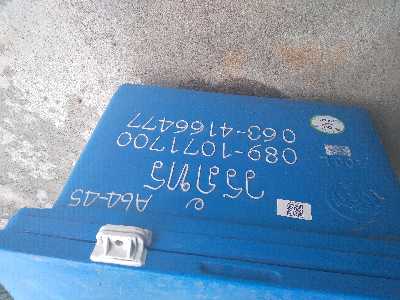 A64-45
วรภัทร
089-1071700
063-4166477